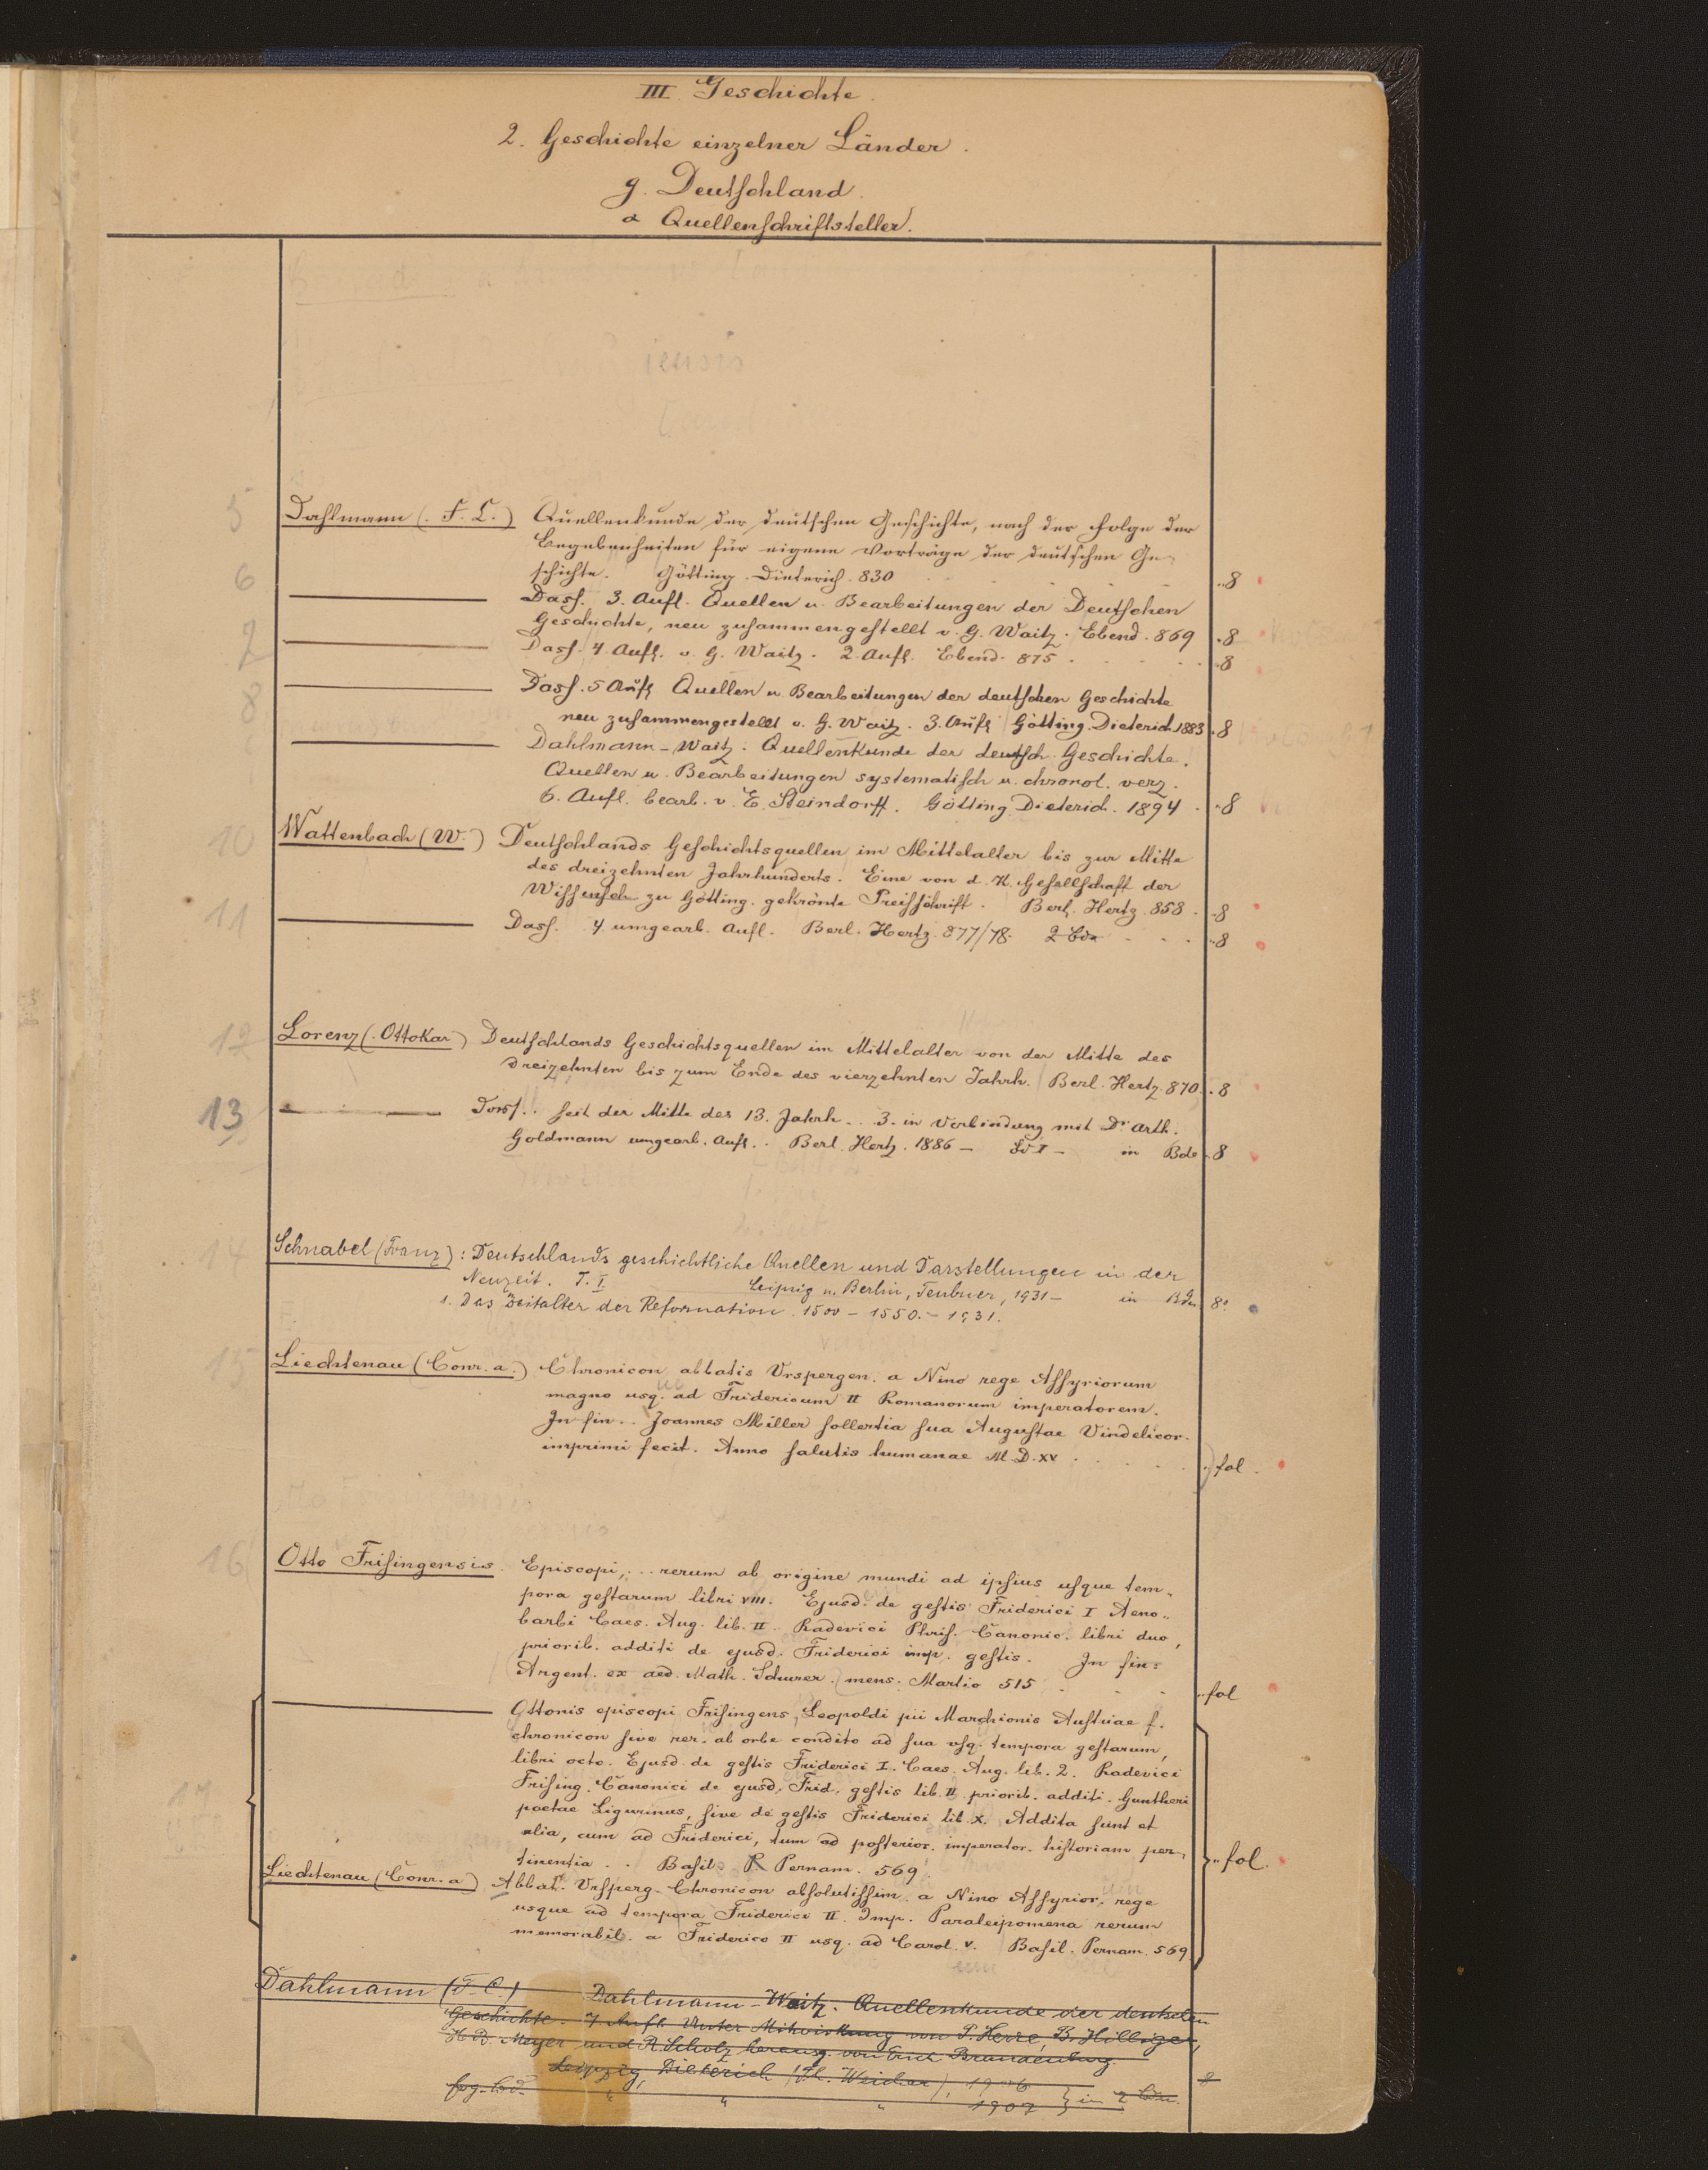 III. Geschichte.
2. Geschichte einzelner Länder.
g. Deutschland.
α Quellenschriftsteller.
5 Dahlmann (F. C.) Quellenkunde der deutschen Geschichte, nach der Folge der
Begebenheiten für eigene Vorträge der deutschen Ge-
6 schichte. Götting. Dieterich. 830 8
Dass. 3. Aufl. Quellen u. Bearbeitungen der Deutschen
Geschichte, neu zusammengestellt v. G. Waitz. Ebend. 869 8
7 Dass. 4. Aufl. v. G. Waitz. 2. Aufl. Ebend. 875 8
8 Dass. 5 Aufl Quellen u Bearbeitungen der deutschen Geschichte
neu zusammengestellt v. G. Waitz. 3. Aufl Götting. Dieterich 1883 8
Dahlmann-Waitz. Quellenkunde der deutsch. Geschichte.
Quellen u. Bearbeitungen systematisch u. chronol. verz.
6. Aufl. bearb. v. E. Steindorff. Götting. Dieterich. 1894 8
10 Wattenbach (W.) Deutschlands Geschichtsquellen im Mittelalter bis zur Mitte
des dreizehnten Jahrhunderts. Eine von d. K. Gesellschaft der
Wissensch. zu Götting. gekrönte Preisschrift. Berl. Hertz. 858 8
11 Dass. 4. umgearb. Aufl. Berl. Hertz. 877/78. 2 Bde 8
12 Lorenz (Ottokar) Deutschlands Geschichtsquellen im Mittelalter von der Mitte des
dreizehnten bis zum Ende des vierzehnten Jahrh. Berl. Hertz. 870 8
13 Dass. seit der Mitte des 13. Jahrh. 3. in Verbindung mit Dr Arth.
Goldmann umgearb. Aufl. Berl. Hertz. 1886 – Bd I – in Bde 8
14 Schnabel (Franz): Deutschlands geschichtliche Quellen und Darstellungen in der
Neuzeit. T. I Leipzig u. Berlin, Teubner, 1931 – in Bdn 8°
1. Das Zeitalter der Reformation. 1500 – 1550. – 1931.
15 Liechtenau (Conr. a.) Chronicon abbatis Urspergen. a Nino rege Assyriorum
magno usq. ad Fridericum II Romanorum imperatorem.
In fin. Joannes Miller sollertia sua Augustae Vindelicor.
imprimi fecit. Anno salutis humanae M.D.XV fol.
16 Otto Frisingensis Episcopi, rerum ab origine mundi ad ipsius usque tem-
pora gestarum libri VIII. Ejusd. de gestis Friderici I Aeno-
barbi Caes. Aug. lib. II. Radevici Phris. Canonic. libri duo,
priorib. additi de ejusd. Friderici imp. gestis. In fin:
Argent. ex aed. Math. Schurer. mens. Martio 515 fol
Ottonis episcopi Frisingens, Leopoldi pii Marchionis Austriae f.
chronicon sive rer. ab orbe condito ad sua usq. tempora gestarum,
libri octo. Ejusd. de gestis Friderici I. Caes. Aug. lib. 2. Radevici
Frising. Canonici de ejusd. Frid. gestis lib. II priorib. additi. Guntheri
17 poetae Ligurinus, sive de gestis Friderici lib. X. Addita sunt et
alia, cum ad Friderici, tum ad posterior. imperator. historiam per-
tinentia. Basil. P. Pernam. 569 fol.
Liechtenau (Conr. a) Abbat. Ursperg. Chronicon absolutissim. a Nino Assyrior. rege
usque ad tempora Friderici II. Imp. Paraleipomena rerum
memorabil. a Friderico II usq. ad Carol. V. Basil. Pernam. 569
Dahlmann (F. C.) Dahlmann-Waitz. Quellenkunde der deutschen
Geschichte. 7. Aufl. Unter Mitwirkung von P. Herre, B. Hilliger,
H. B. Meyer und R. Scholz herausg. von Erich Brandenburg.
Leipzig, Dieterich (Th. Weicher), 1906 8
Erg.-Bd. " " " 1907 } in 2 Bdn.